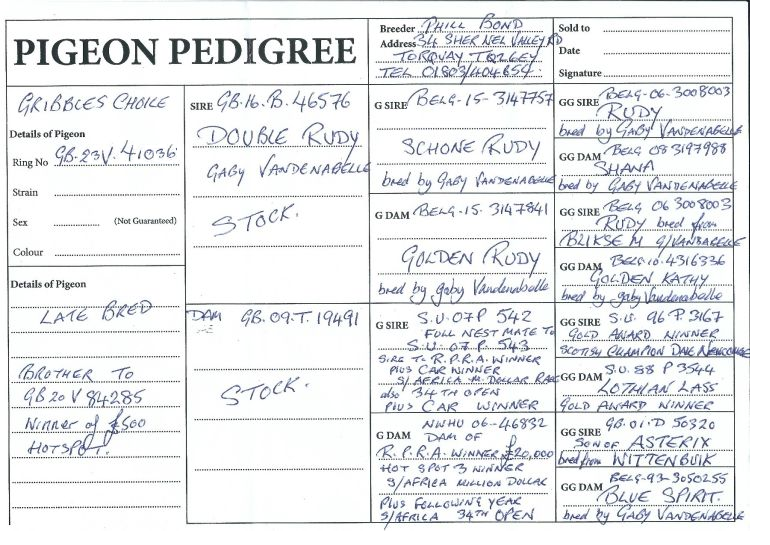 PIGEON PEDIGREE
Breeder PHILL BOND
Address 34 SHERNEL VALLEY RD
TORQUAY TQ27EY
TEL 01803/404854.
Sold to
Date
Signature
GRIBBLES CHOICE
Details of Pigeon
Ring No GB.23V.41036
Strain
Sex (Not Guaranteed)
Colour
Details of Pigeon
LATE BRED
BROTHER TO
GB20 V 84285
Winner of £500
HOTSPOT.
SIRE GB.16.B.46576
DOUBLE RUDY
GABY VANDENABELLE
STOCK.
DAM GB.09.T.19491
STOCK.
G SIRE BELG-15-3147757
SCHONE RUDY
bred by GABY VANDENABELLE
G DAM BELG-15-3147841
GOLDEN RUDY
bred by gaby Vandenabelle
G SIRE S.U.07P 542
FULL NEST MATE TO
S.U.07P 543
SIRE TO R.P.R.A. WINNER
PLUS CAR WINNER
S/AFRICA M. DOLLAR RACE
also 34TH OPEN
PLUS CAR WINNER
G DAM NWHU 06-46832
DAM OF
R.P.R.A. WINNER £20,000
HOT SPOT 3 WINNER
S/AFRICA MILLION DOLLAR
PLUS FOLLOWING YEAR
S/AFRICA 34TH OPEN
GG SIRE BELG-06-3008003
RUDY
bred by GABY VANDENABELLE
GG DAM BELG 08 3197988
SHANA
bred by GABY VANDENABELLE
GG SIRE BELG 06 3008003
RUDY bred from
BLIKSEM G/VANBABELLE
GG DAM BELG-10-4316336
GOLDEN KATHY
bred by gaby Vandenabelle
GG SIRE S.U. 96 P.3167
GOLD AWARD WINNER
SCOTISH CHAMPION DAVE NEWCOMBE
GG DAM S.U. 88 P 3544
LOTHIAN LASS
GOLD AWARD WINNER
GG SIRE GB.01.D 50320
SON OF ASTERIX
bred from WITTENBUIK
GG DAM BELG-93-3050255
BLUE SPIRIT.
bred by GABY VANDENABELLE